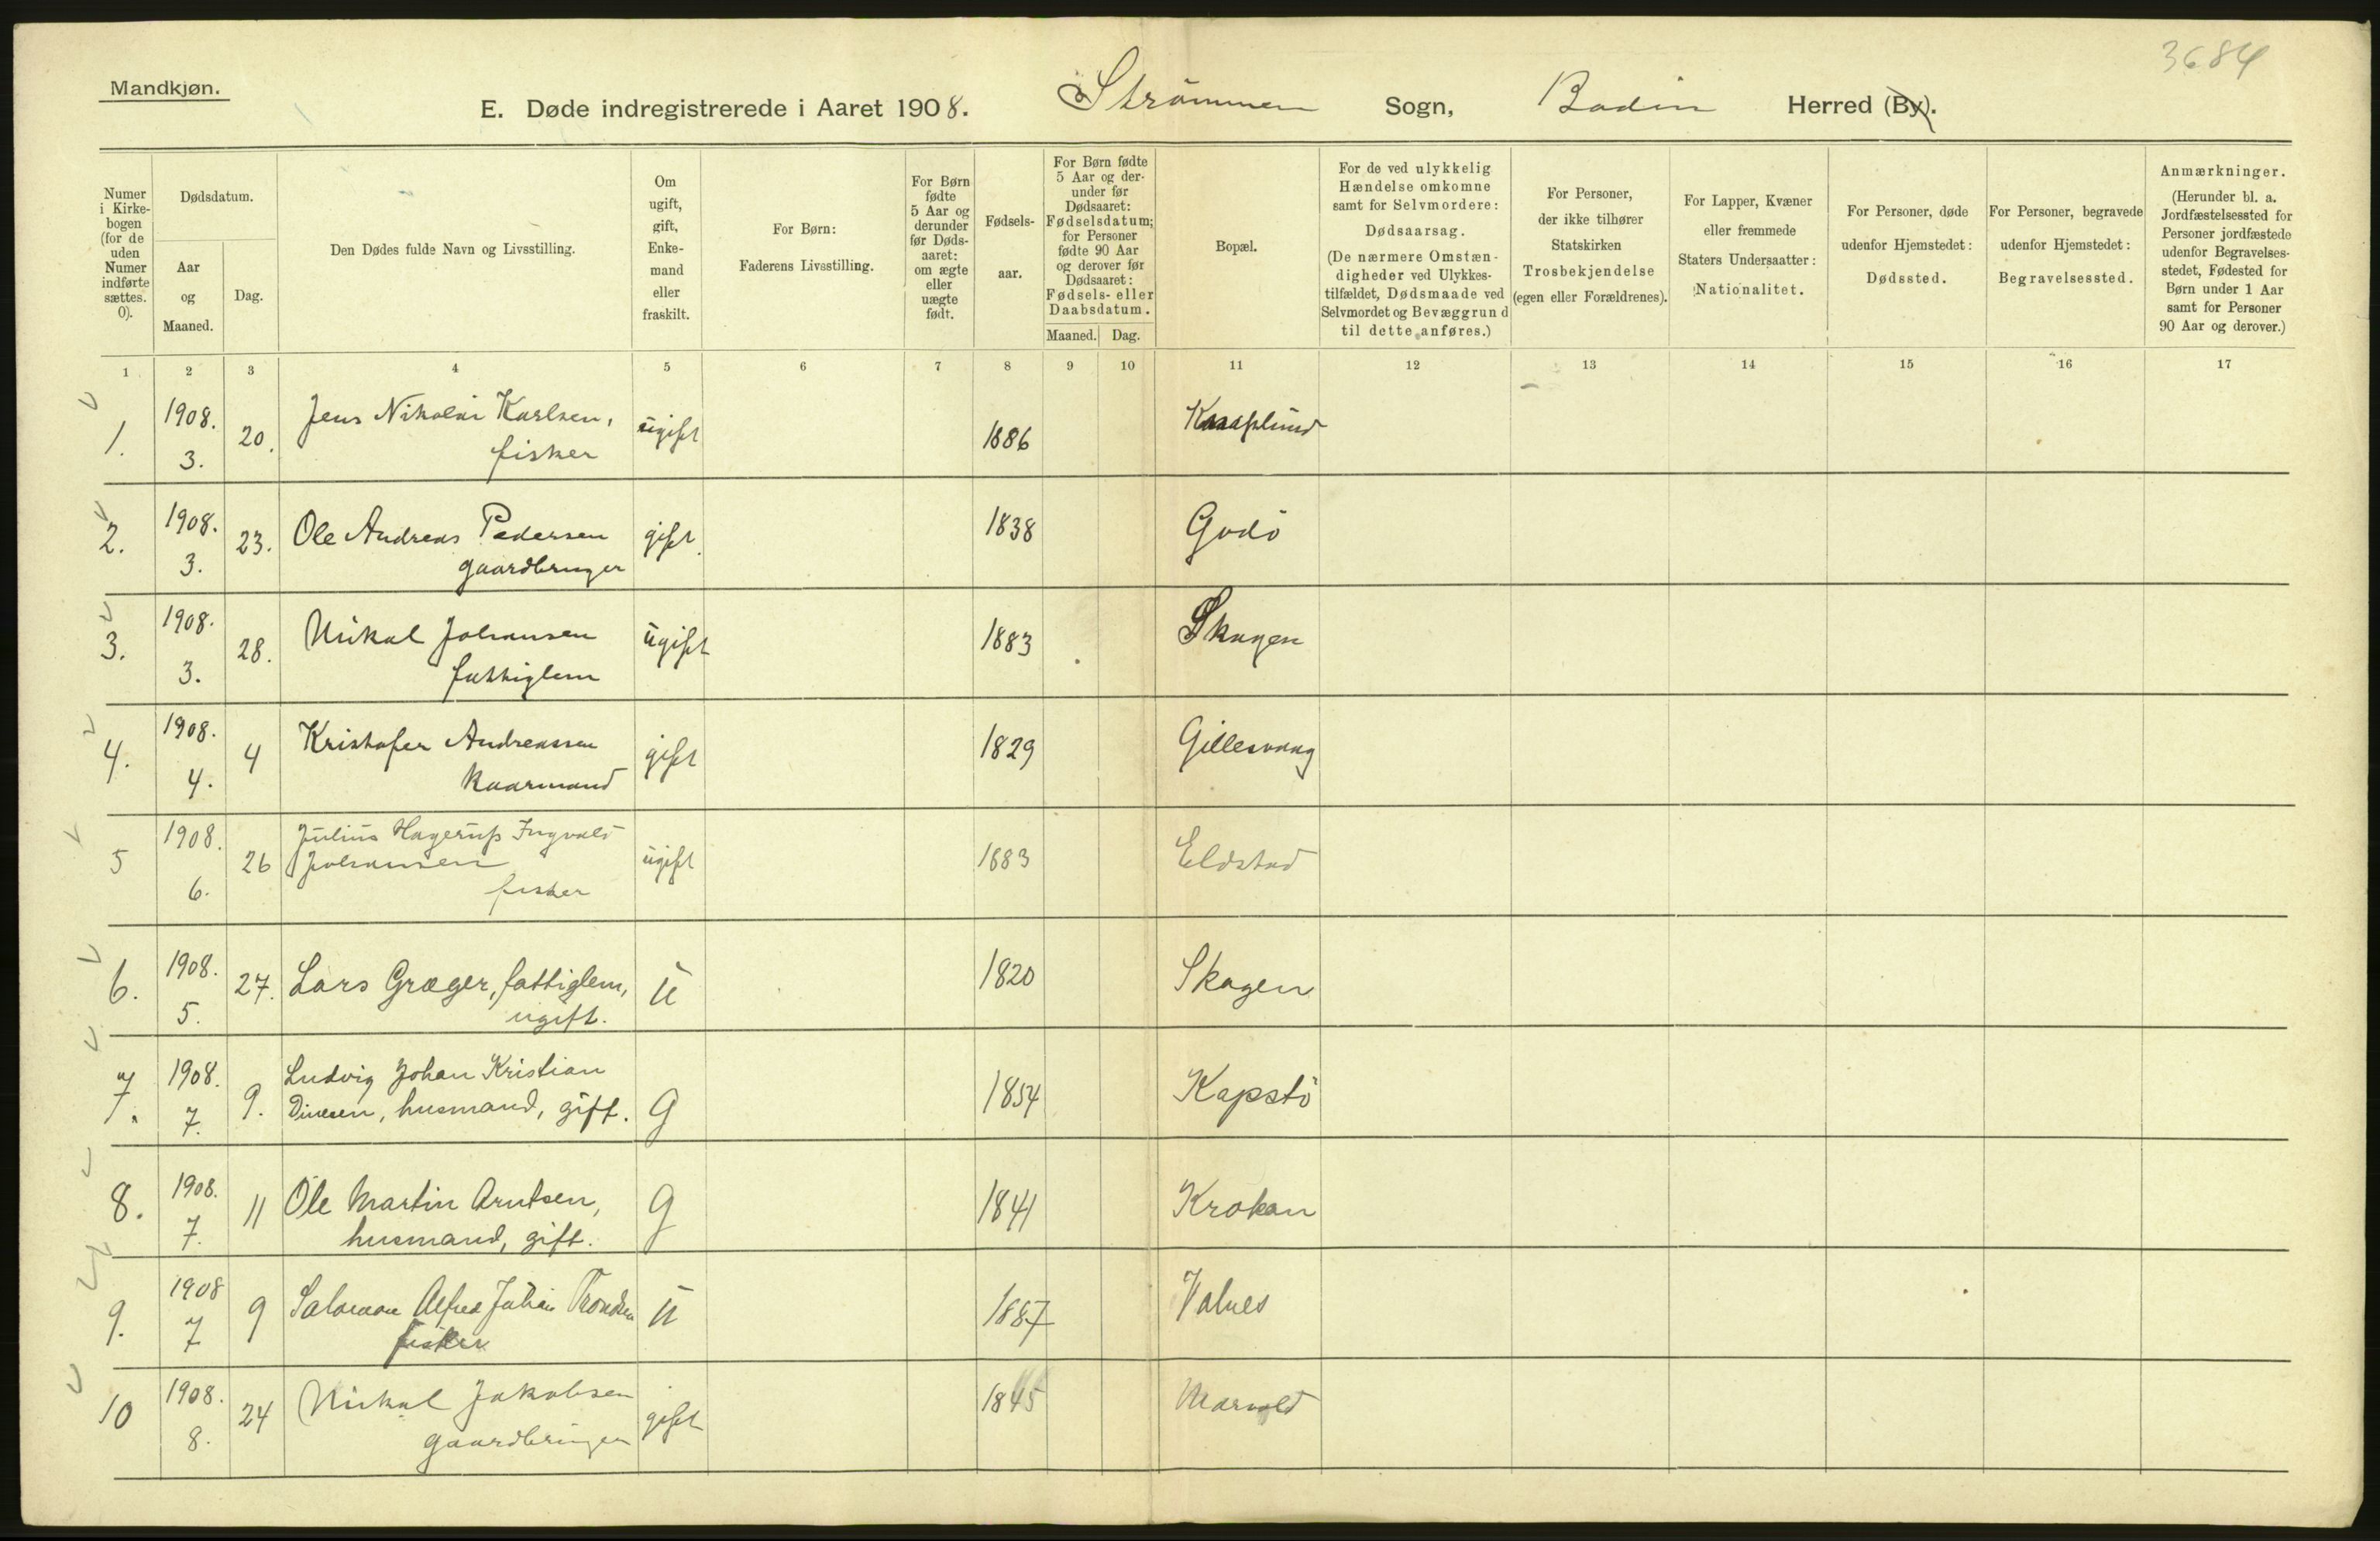 3684
Mandkjøn.
E. Døde indregistrerede i Aaret 1908. Strømmen Sogn, Bodin Herred (By).
Numer i Kirkebogen (for de uden Numer indførte sættes. 0).
Dødsdatum.
Aar og Maaned.
Dag.
Den Dødes fulde Navn og Livsstilling.
Om ugift, gift, Enkemand eller fraskilt.
For Børn: Faderens Livsstilling.
For Børn fødte 5 Aar og derunder før Dødsaaret: om ægte eller uægte født.
Fødselsaar.
For Børn fødte 5 Aar og derunder før Dødsaaret: Fødselsdatum; for Personer fødte 90 Aar og derover før Dødsaaret: Fødsels- eller Daabsdatum.
Maaned. Dag.
Bopæl.
For de ved ulykkelig Hændelse omkomne samt for Selvmordere: Dødsaarsag. (De nærmere Omstændigheder ved Ulykkestilfældet, Dødsmaade ved Selvmordet og Bevæggrund til dette anføres.)
For Personer, der ikke tilhører Statskirken Trosbekjendelse (egen eller Forældrenes).
For Lapper, Kvæner eller fremmede Staters Undersaatter: Nationalitet.
For Personer, døde udenfor Hjemstedet: Dødssted.
For Personer, begravede udenfor Hjemstedet: Begravelsessted.
Anmærkninger. (Herunder bl. a. Jordfæstelsessted for Personer jordfæstede udenfor Begravelsesstedet, Fødested for Børn under 1 Aar samt for Personer 90 Aar og derover.)
1 2 3 4 5 6 7 8 9 10 11 12 13 14 15 16 17
1. 1908. 3. 20. Jens Nikolai Karlsen, ugift 1886
fisker
2. 1908. 3. 23. Ole Andreas Pedersen gift. 1838 Godö
gaardbruger
3. 1908. 3. 28. Mikal Johansen ugift 1883 Skagen
fattiglem
4. 1908. 4. 4 Kristofer Andreassen gift 1829 Gillesvaag
kaarmand
5 1908. 6. 26 Julius Hagerup Ingvald
Johansen ugift 1883 Eldstad
fisker
6. 1908. 5. 27. Lars Græger, fattiglem, u 1820 Skagen
ugift.
7. 1908. 7. 9. Ludvig Johan Kristian
Dinesen, husmand, gift. g 1854 Kapstö
8. 1908. 7. 11 Ole Martin Arntsen, g 1841 Krokan
husmand, gift.
9. 1908 7 9 Salomon Alfred Julian Trondsen u 1887 Valnes
fisker
10 1908. 8. 24 Mikal Jakobsen gift 1845 Marvold
gaardbruger